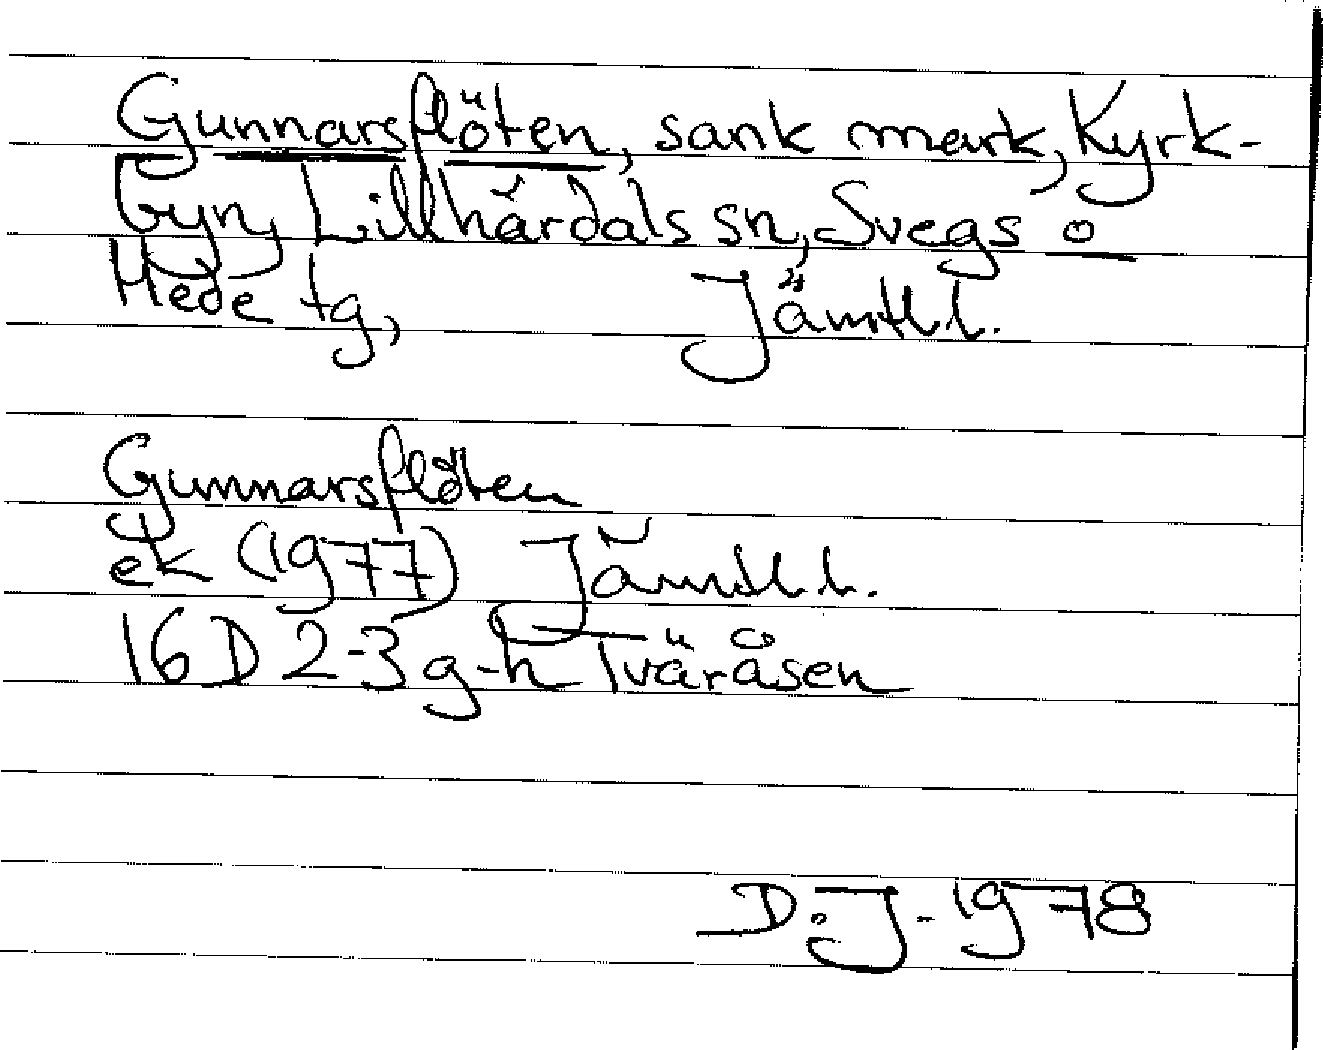 Gunnarsflöten, sank mark, Kyrk-
byn, Lillhärdals sn, Svegs o
Hede tg, Jämtl. l.
Gunnarsflöten
ek (1977) Jämtl. l.
16 D 2-3 g-h Tväråsen
D. J. 1978